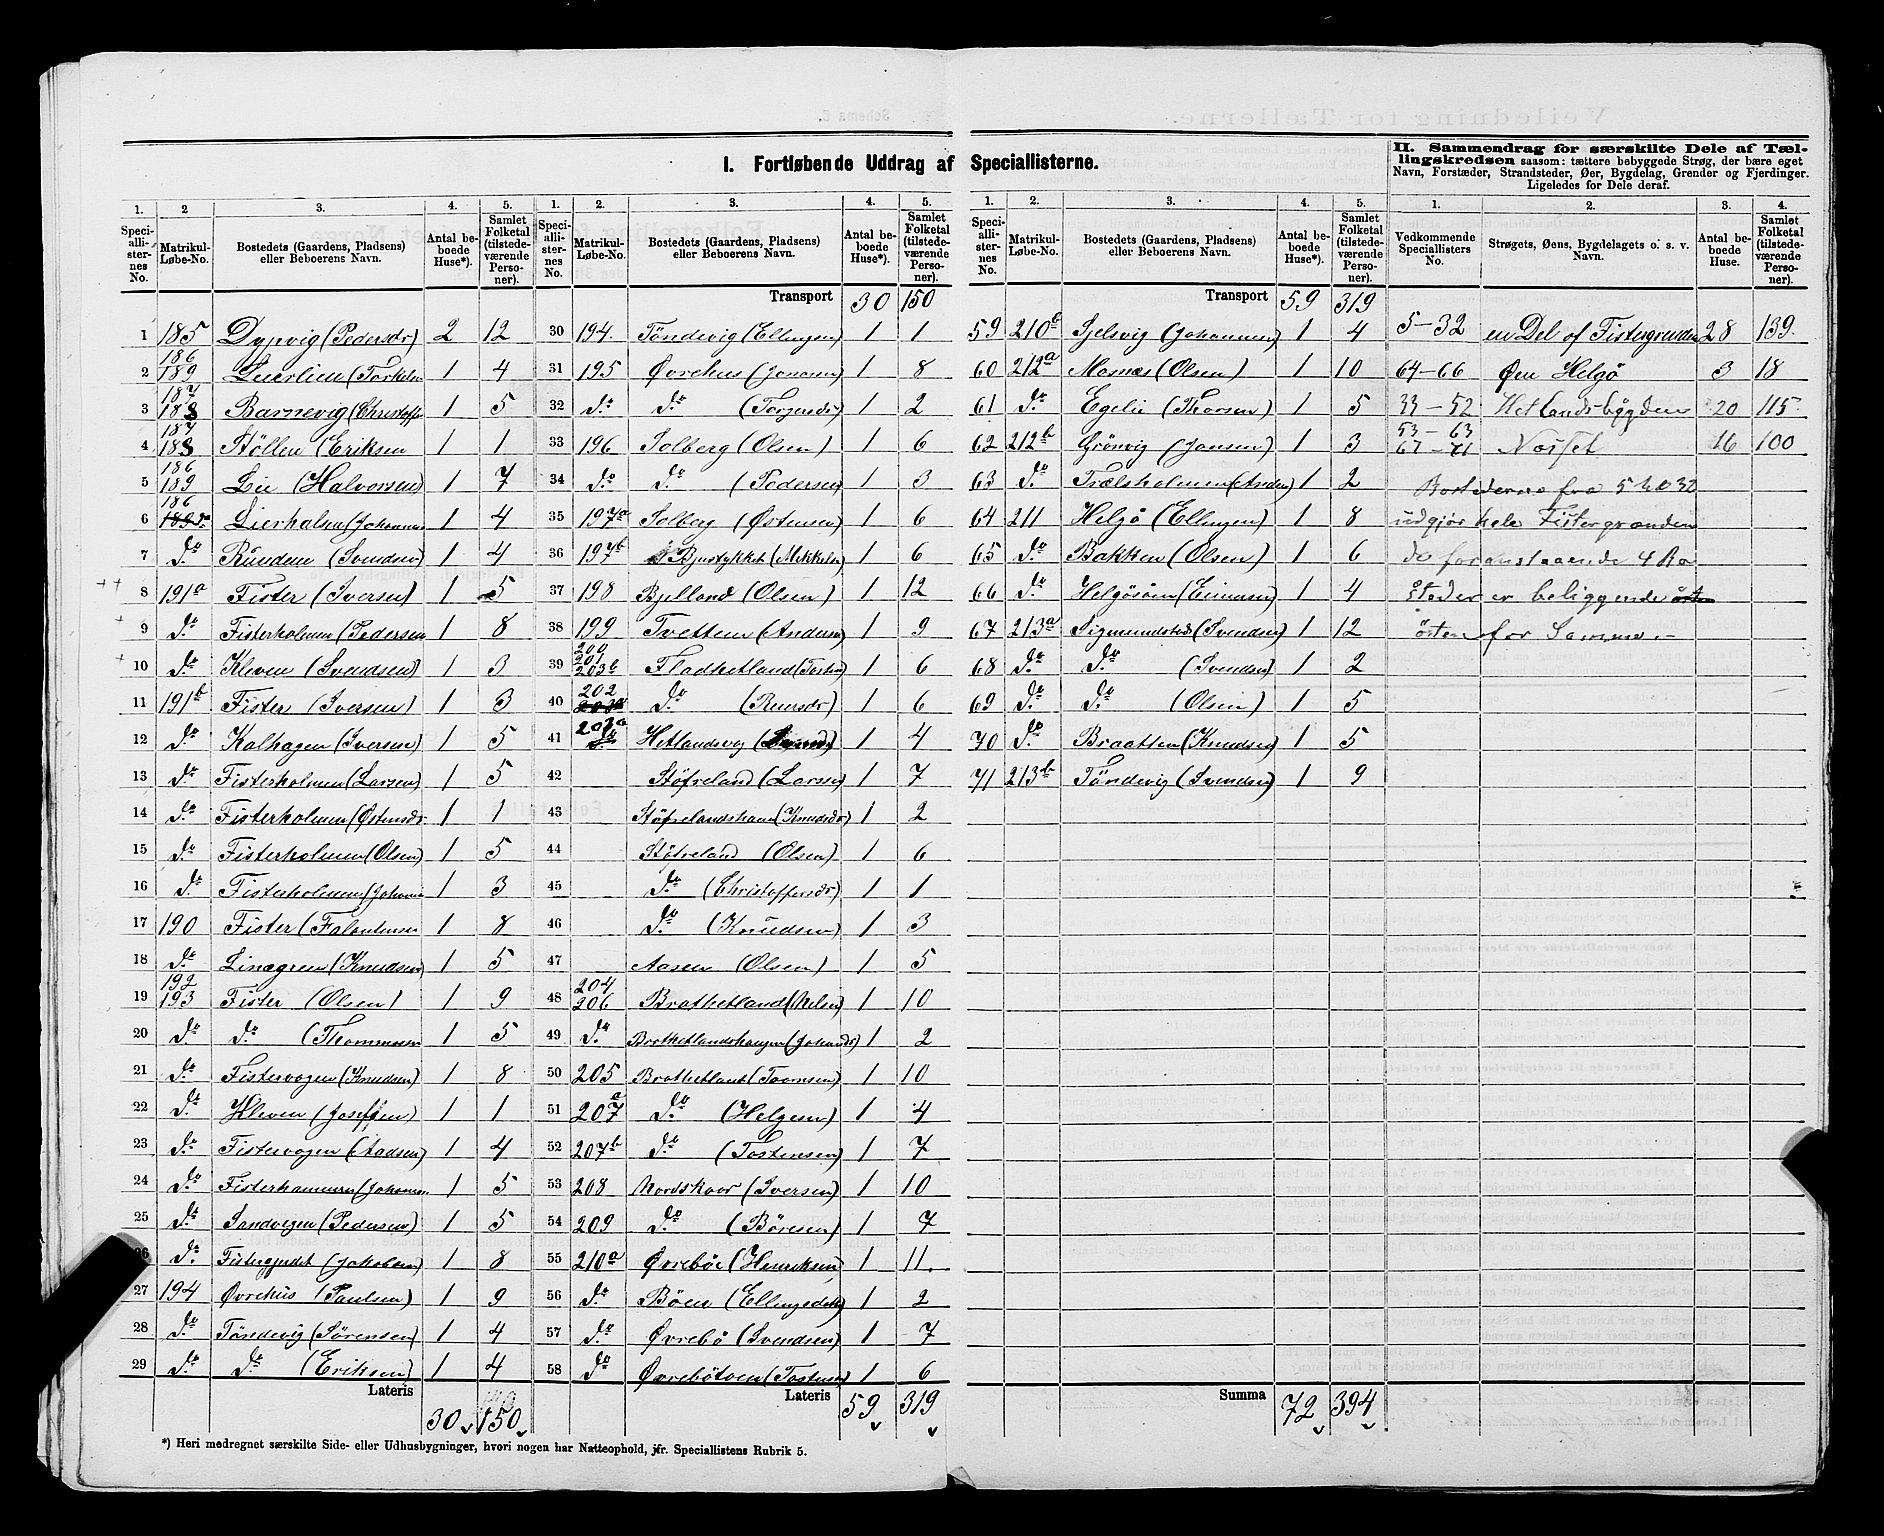 I. Fortløbende Uddrag af Speciallisterne.
II. Sammendrag for særskilte Dele af Tæl-
lingskredsen saasom: tættere bebyggede Strøg, der bære eget
Navn, Forstæder, Strandsteder, Øer, Bygdelag, Grender og Fjerdinger.
Ligeledes for Dele deraf.
1. 2 3. 4. 5.
Speciallisternes No. Matrikul-Løbe-No. Bostedets (Gaardens, Pladsens) eller Beboerens Navn. Antal beboede Huse*). Samlet Folketal (tilstedeværende Personer).
1 185 Dypvig (Pedersdr) 2 12
2 186 189 Lierlien (Torkelsn 1 4
3 187 188 Barnevig (Christoffs 1 5
4 187 188 Støllen (Eriksen 1 1
5 186 189 Lie (Halvorsen) 1 7
6 186 Lierholen (Johannes 1 4
7 do Runden (Svendsen) 1 4
8 191a Fister (Iversen) 1 5
9 do Fisterholmen (Pedersen 1 8
10 do Kleven (Svendsen) 1 3
11 191b Fister (Iversen) 1 3
12 do Kalhagen (Iversen) 1 5
13 do Fisterholmen (Larsen) 1 5
14 do Fisterholmen (Østensdr. 1 1
15 do Fisterholmen (Olsen) 1 5
16 do Fisterholmen (Johanne 1 3
17 190 Fister (Falentinsen 1 8
18 do Linegren (Knudsen) 1 5
19 192 193 Fister (Olsen) 1 9
20 do do (Thommesen 1 5
21 do Fistervogen (Knudsen) 1 8
22 do Kleven (Josefsen) 1 1
23 do Fistervogen (Aadsen) 1 4
24 do Fisterhammern (Johannes. 1 5
25 do Sandvigen (Pedersen) 1 5
26 do Fistergjerdet (Jakobsen) 1 8
27 194 Øvrehus (Paulsen) 1 9
28 do Tøndevig (Sørensen) 1 4
29 do do (Eriksen) 1 4
Lateris 30 150
1. 2. 3. 4. 5.
Speciallisternes No. Matrikul-Løbe-No. Bostedets (Gaardens, Pladsens) eller Beboerens Navn. Antal beboede Huse*). Samlet Folketal (tilstedeværende Personer).
Transport 30 150
30 194. Tøndevig (Ellingsen) 1 1
31 195 Øvrehus (Jonasen) 1 8
32 do do (Torgersdr) 1 2
33 196 Solberg (Olsen) 1 6
34 do do (Pedersen) 1 3
35 197a Solberg (Østensen) 1 6
36 197b Bjustykket (Mikkelsn) 1 6
37 198 Bjelland (Olsen) 1 12
38 199 Tvetten (Andersn) 1 9
39 200 201 203b Fladhetland (Tosten) 1 6
40 202 do (Riersdr) 1 6
41 Hetlandsvig 1 4
42 Støfreland (Larsen) 1 7
43 Støfrelandshaun (Knudsdr) 1 2
44 Støfreland (Olsen) 1 6
45 do (Christoffersdr) 1 1
46 do (Knudsen) 1 3
47 Aasen (Olsen) 1 5
48 204 206 Brathetland (Nelsen) 1 10
49 do Brathetlandshaugen (Johansdr) 1 2
50 205 Brathetland (Toomsen) 1 10
51 207a do (Helgesen) 1 4
52 207b do (Tostensen) 1 7
53 208 Nordskoor (Iversen) 1 10
54 209 do (Børesen) 1 7
55 210a Øvrebøe (Henriksen) 1 11.
56 do Bøen (Ellingsdtr) 1 2
57 do Øvrebø (Svendsen) 1 7
58 do Øvrebøtoen (Tostensn) 1 6
Lateris 59 319
1. 2. 3. 4. 5.
Speciallisternes No. Matrikul-Løbe-No. Bostedets (Gaardens, Pladsens) eller Beboerens Navn. Antal beboede Huse*). Samlet Folketal (tilstedeværende Personer).
Transport 59 319
59 210b Sjelsvig (Johannesen) 1 4
60 212a Mosnes (Olsen) 1 10
61 do Egelie (Thorsen) 1 5
62 212b Grønvig (Jansen) 1 3
63 do Trælsholmen (Anden) 1 2
64 211 Helgø (Ellingsen) 1 8
65 do Bakken (Olsen) 1 6
66 do Helgøsøen (Einersen) 1 4
67 213a Sigmundstad (Svendsen) 1 12
68 do do (Svendsen) 1 2
69 do do (Olsen) 1 5
70 do Braatten (Knudsen) 1 5
71 213b Tøndevig (Svendsen) 1 9
Summa 72 394
1. 2. 3. 4.
Vedkommende Speciallisters No. Strøgets, Øens, Bygdelagets o. s. v. Navn. Antal beboede Huse. Samlet Folketal (tilstedeværende Personer).
5-32 en Del af Fistergrenden 28 139.
64-66 Øen Helgø 3 18
33-52 Hetlandsbygden 20 115
53-63 67-71 Næsset 16 100
Bostederne fra 5 til 32
udgjør hele Fistergrænden
de foranstaaende 4 Bo
steder er beliggende
østenfor Samme.
*) Heri medregnet særskilte Side- eller Udhusbygninger, hvori nogen har Natteophold, jfr. Speciallistens Rubrik 5.